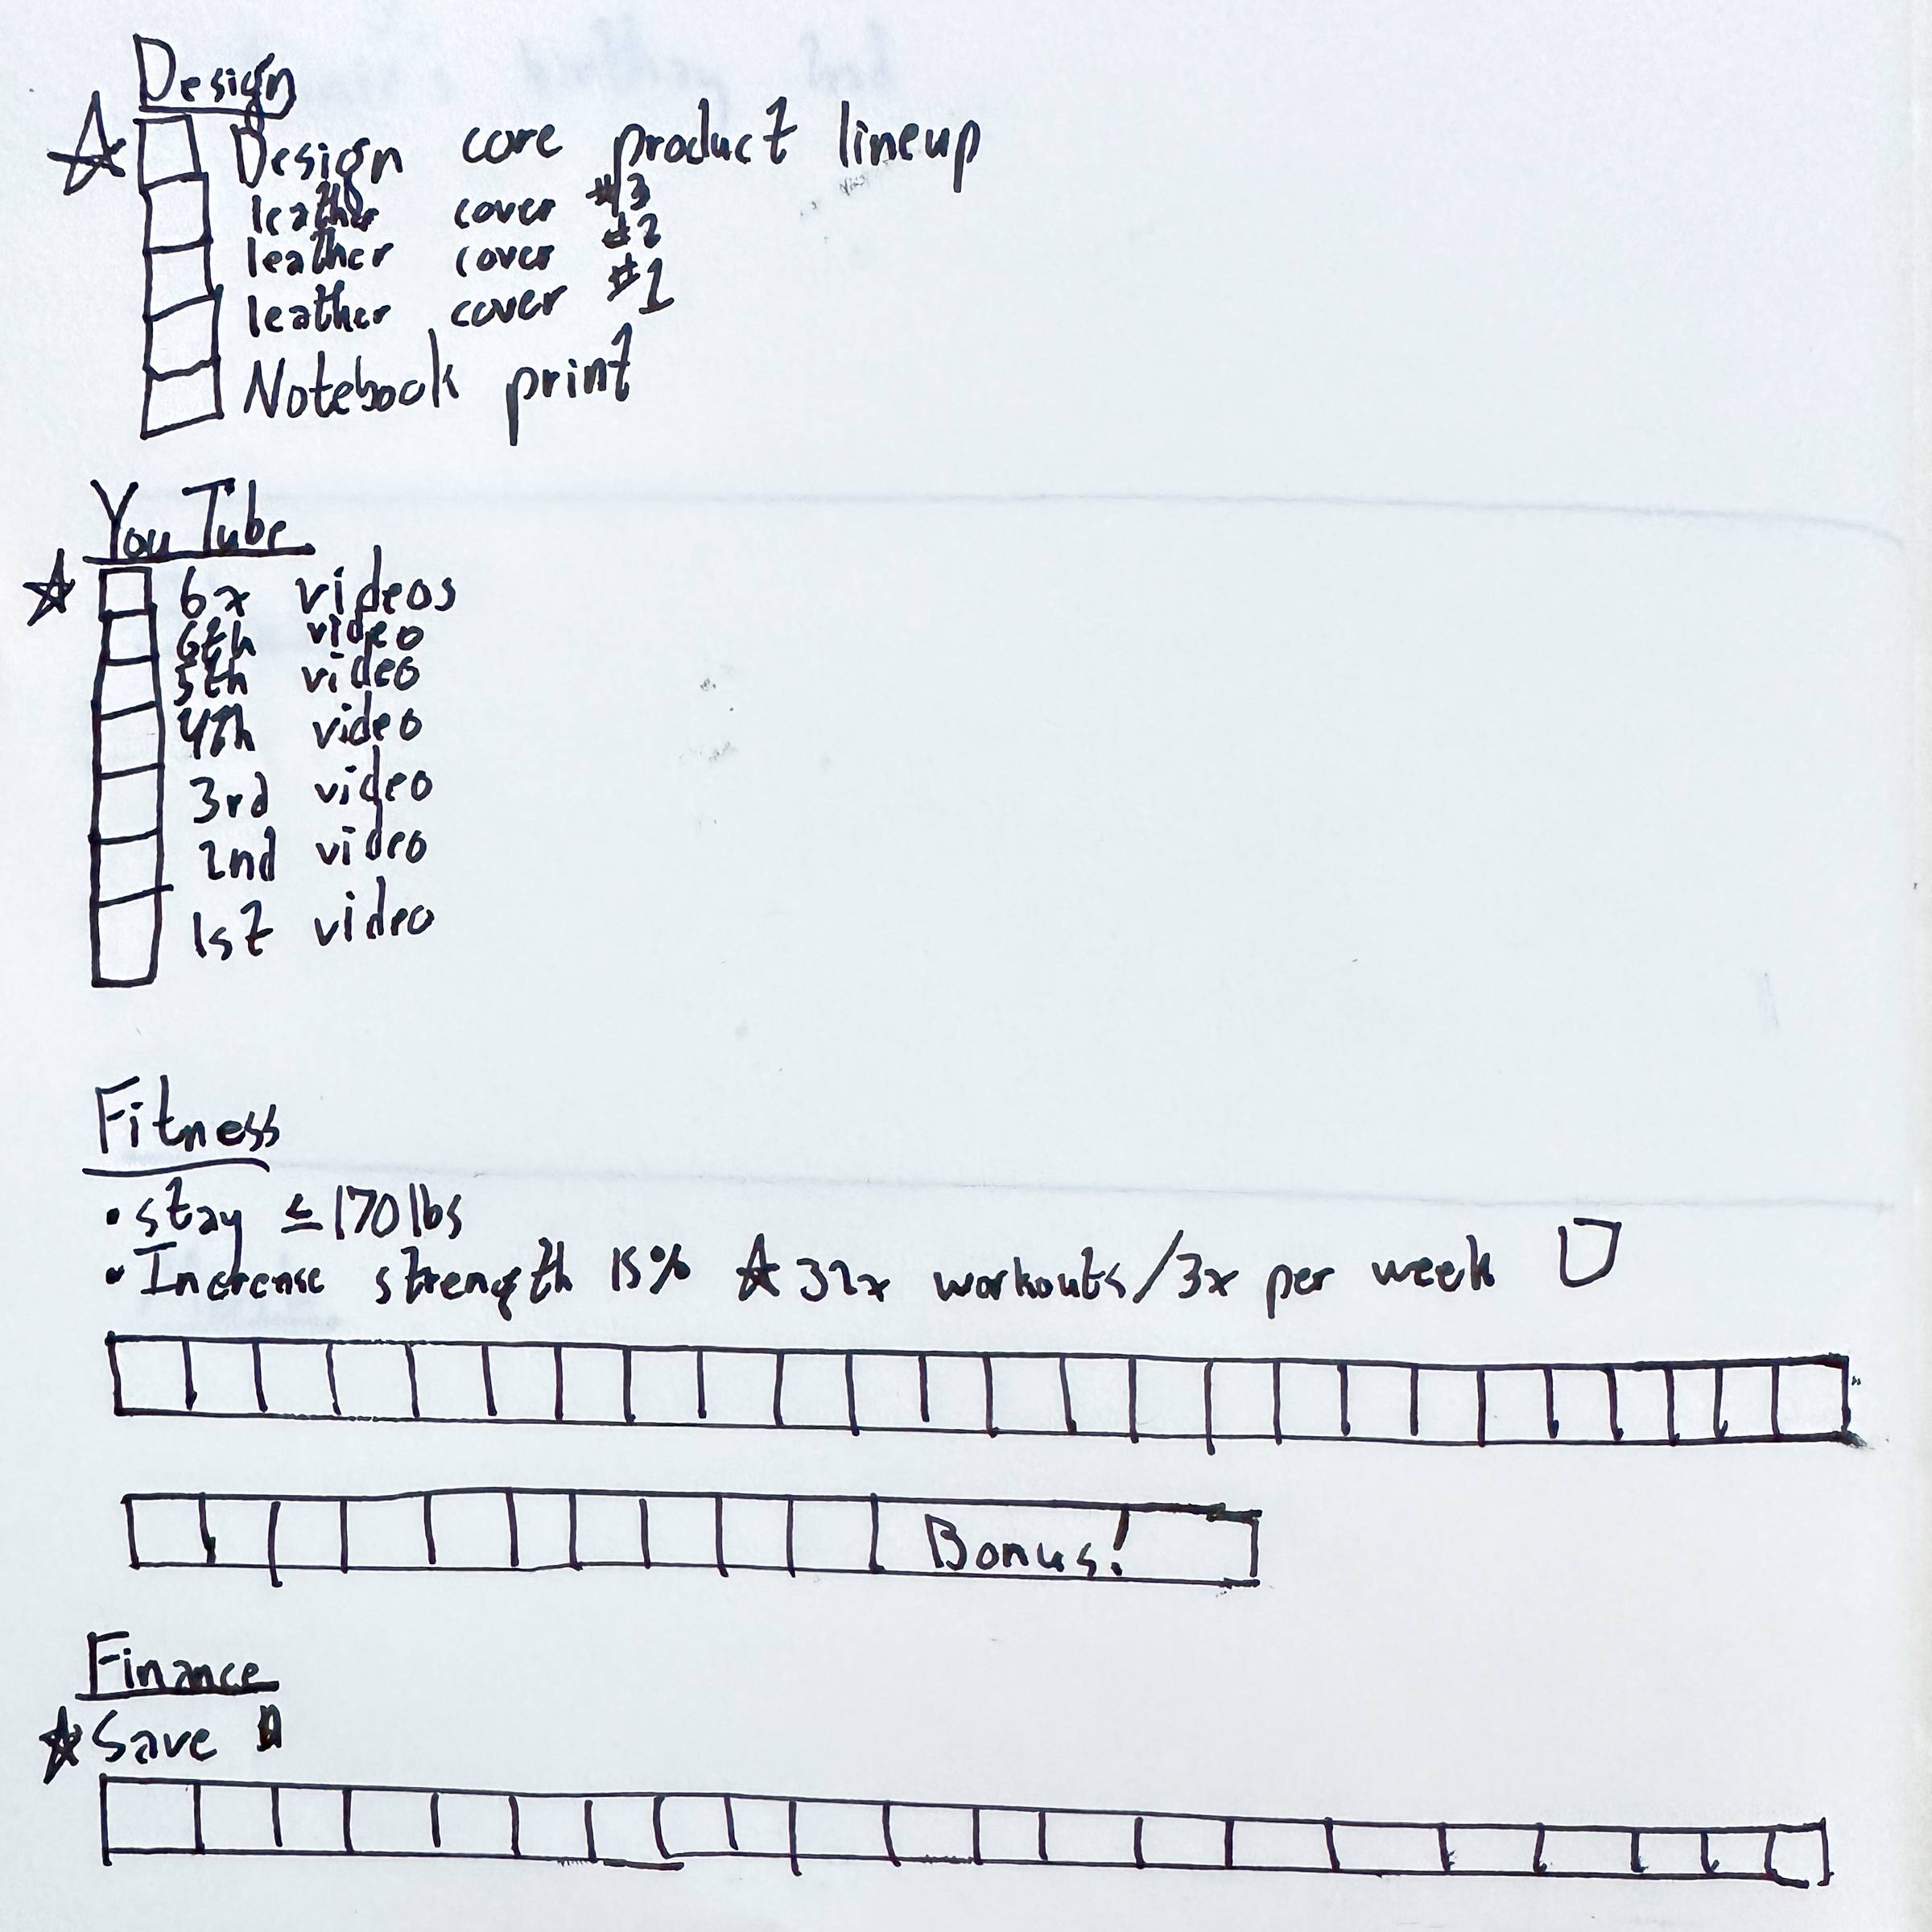 Design
Design core product lineup
leather cover #3
leather cover #2
leather cover #1
Notebook print
YouTube
6x videos
6th video
5th video
4th video
3rd video
2nd video
1st video
Fitness
• stay ≤ 170 lbs
• Increase strength 15% ☆ 32x workouts/3x per week
Bonus!
Finance
☆ Save